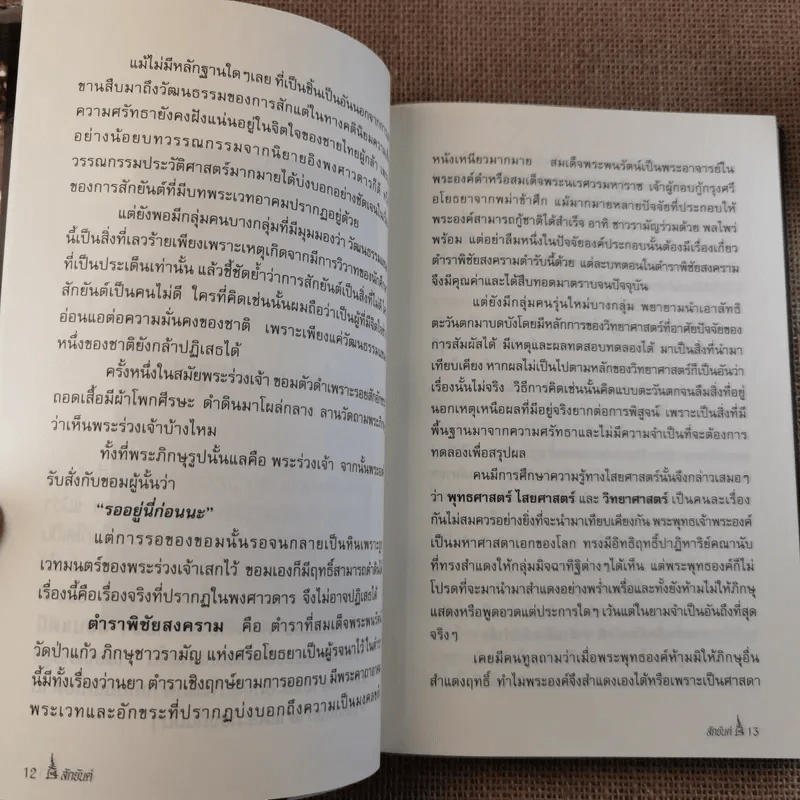 แม้ไม่มีหลักฐานใดๆเลย ที่เป็นชิ้นเป็นอันนอกจาก
ขานสืบมาถึงวัฒนธรรมของการสักแต่ในทางคตินิยมความ
ความศรัทธายังคงฝังแน่นอยู่ในจิตใจของชายไทยผู้กล้า
อย่างน้อยบทวรรณกรรมจากนิยายอิงพงศาวดารก็ดี
วรรณกรรมประวัติศาสตร์มากมายได้บ่งบอกอย่างชัดเจน
ของการสักยันต์ที่มีบทพระเวทอาคมปรากฏอยู่ด้วย
แต่ยังพอมีกลุ่มคนบางกลุ่มที่มีมุมมองว่า วัฒนธรรม
นี้เป็นสิ่งที่เลวร้ายเพียงเพราะเหตุเกิดจากมีการวิวาทของนัก
ที่เป็นประเด็นเท่านั้น แล้วชี้ชัดย้ำว่าการสักยันต์เป็นสิ่งที่ไม่ดี
สักยันต์เป็นคนไม่ดี ใครที่คิดเช่นนั้นผมถือว่าเป็นผู้ที่มี
อ่อนแอต่อความมั่นคงของชาติ เพราะเพียงแค่วัฒนธรรม
หนึ่งของชาติยังกล้าปฏิเสธได้
ครั้งหนึ่งในสมัยพระร่วงเจ้า ขอมตัวดำเพราะรอยสัก
ถอดเสื้อมีผ้าโพกศีรษะ ดำดินมาโผล่กลาง ลานวัดถามพระ
ว่าเห็นพระร่วงเจ้าบ้างไหม
ทั้งที่พระภิกษุรูปนั้นแลคือ พระร่วงเจ้า จากนั้นพระ
รับสั่งกับขอมผู้นั้นว่า
“รออยู่นี่ก่อนนะ”
แต่การรอของขอมนั้นรอจนกลายเป็นหินเพราะ
เวทมนตร์ของพระร่วงเจ้าเสกไว้ ขอมเองก็มีฤทธิ์สามารถดำดิน
เรื่องนี้คือเรื่องจริงที่ปรากฏในพงศาวดาร จึงไม่อาจปฏิเสธได้
ตำราพิชัยสงคราม คือ ตำราที่สมเด็จพระพนรัตน์
วัดป่าแก้ว ภิกษุชาวรามัญ แห่งศรีอโยธยาเป็นผู้รจนาไว้
นี้มีทั้งเรื่องว่านยา ตำราเชิงฤกษ์ยามการออกรบ มีพระคาถา
พระเวทและอักขระที่ปรากฏบ่งบอกถึงความเป็นมงคล
12 สักยันต์
หนังเหนียวมากมาย สมเด็จพระพนรัตน์เป็นพระอาจารย์ใน
พระองค์ดำหรือสมเด็จพระนเรศวรมหาราช เจ้าผู้กอบกู้กรุงศรี
อโยธยาจากพม่าข้าศึก แม้มากมายหลายปัจจัยที่ประกอบให้
พระองค์สามารถกู้ชาติได้สำเร็จ อาทิ ชาวรามัญร่วมด้วย พลไพร่
พร้อม แต่อย่าลืมหนึ่งในปัจจัยองค์ประกอบนั้นต้องมีเรื่องเกี่ยว
ตำราพิชัยสงครามตำรับนี้ด้วย แต่ละบทตอนในตำราพิชัยสงคราม
จึงมีคุณค่าและได้สืบทอดมาตราบจนปัจจุบัน
แต่ยังมีกลุ่มคนรุ่นใหม่บางกลุ่ม พยายามนำเอาลัทธิ
ตะวันตกมาบดบังโดยมีหลักการของวิทยาศาสตร์ที่อาศัยปัจจัยของ
การสัมผัสได้ มีเหตุและผลทดสอบทดลองได้ มาเป็นสิ่งที่นำมา
เทียบเคียง หากผลไม่เป็นไปตามหลักของวิทยาศาสตร์ก็เป็นอันว่า
เรื่องนั้นไม่จริง วิธีการคิดเช่นนั้นคิดแบบตะวันตกจนลืมสิ่งที่อยู่
นอกเหตุเหนือผลที่มีอยู่จริงยากต่อการพิสูจน์ เพราะเป็นสิ่งที่มี
พื้นฐานมาจากความศรัทธาและไม่มีความจำเป็นที่จะต้องการ
ทดลองเพื่อสรุปผล
คนมีการศึกษาความรู้ทางไสยศาสตร์นั้นจึงกล่าวเสมอๆ
ว่า พุทธศาสตร์ ไสยศาสตร์ และ วิทยาศาสตร์ เป็นคนละเรื่อง
กันไม่สมควรอย่างยิ่งที่จะนำมาเทียบเคียงกัน พระพุทธเจ้าพระองค์
เป็นมหาศาสดาเอกของโลก ทรงมีอิทธิฤทธิ์ปาฏิหาริย์คณานับ
ที่ทรงสำแดงให้กลุ่มมิจฉาทิฐิต่างๆได้เห็น แต่พระพุทธองค์ก็ไม่
โปรดที่จะมานำมาสำแดงอย่างพร่ำเพรื่อและทั้งยังห้ามไม่ให้ภิกษุ
แสดงหรือพูดอวดแต่ประการใดๆ เว้นแต่ในยามจำเป็นอันถึงที่สุด
จริงๆ
เคยมีคนทูลถามว่าเมื่อพระพุทธองค์ห้ามมิให้ภิกษุอื่น
สำแดงฤทธิ์ ทำไมพระองค์จึงสำแดงเองได้หรือเพราะเป็นศาสดา
สักยันต์ 13